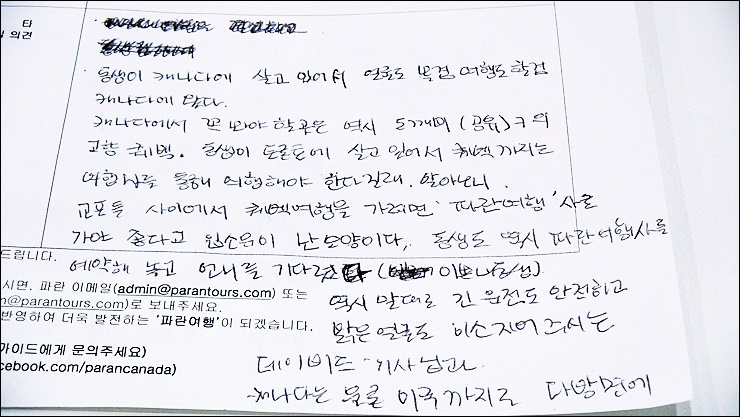 타
의견
동생이 캐나다에 살고 있어서 얼굴도 볼겸 여행도할겸
캐나다에 왔다.
캐나다에서 꼭 봐야 할곳은 역시 도깨비 (공유)ㅋ의
고향 퀘벡. 동생이 토론토에 살고 있어서 퀘벡까지는
여행사를 통해 여행해야 한다길래. 알아보니
교포들 사이에서 퀘벡여행을 가려면 '파란여행'사로
가야 좋다고 입소문이 난모양이다. 동생도 역시 파란여행사를
드립니다.
예약해 놓고 언니를 기다렸다 (이쁜 내동생).
시면, 파란 이메일(admin@parantours.com) 또는
n@parantours.com)로 보내주세요.
반영하여 더욱 발전하는 '파란여행'이 되겠습니다.
역시 말대로 긴 운전도 안전하고
밝은 얼굴로 미소지어 주시는
가이드에게 문의주세요)
cebook.com/parancanada)
데이비드 기사님과
캐나다는 물론 미국까지도 다방면에